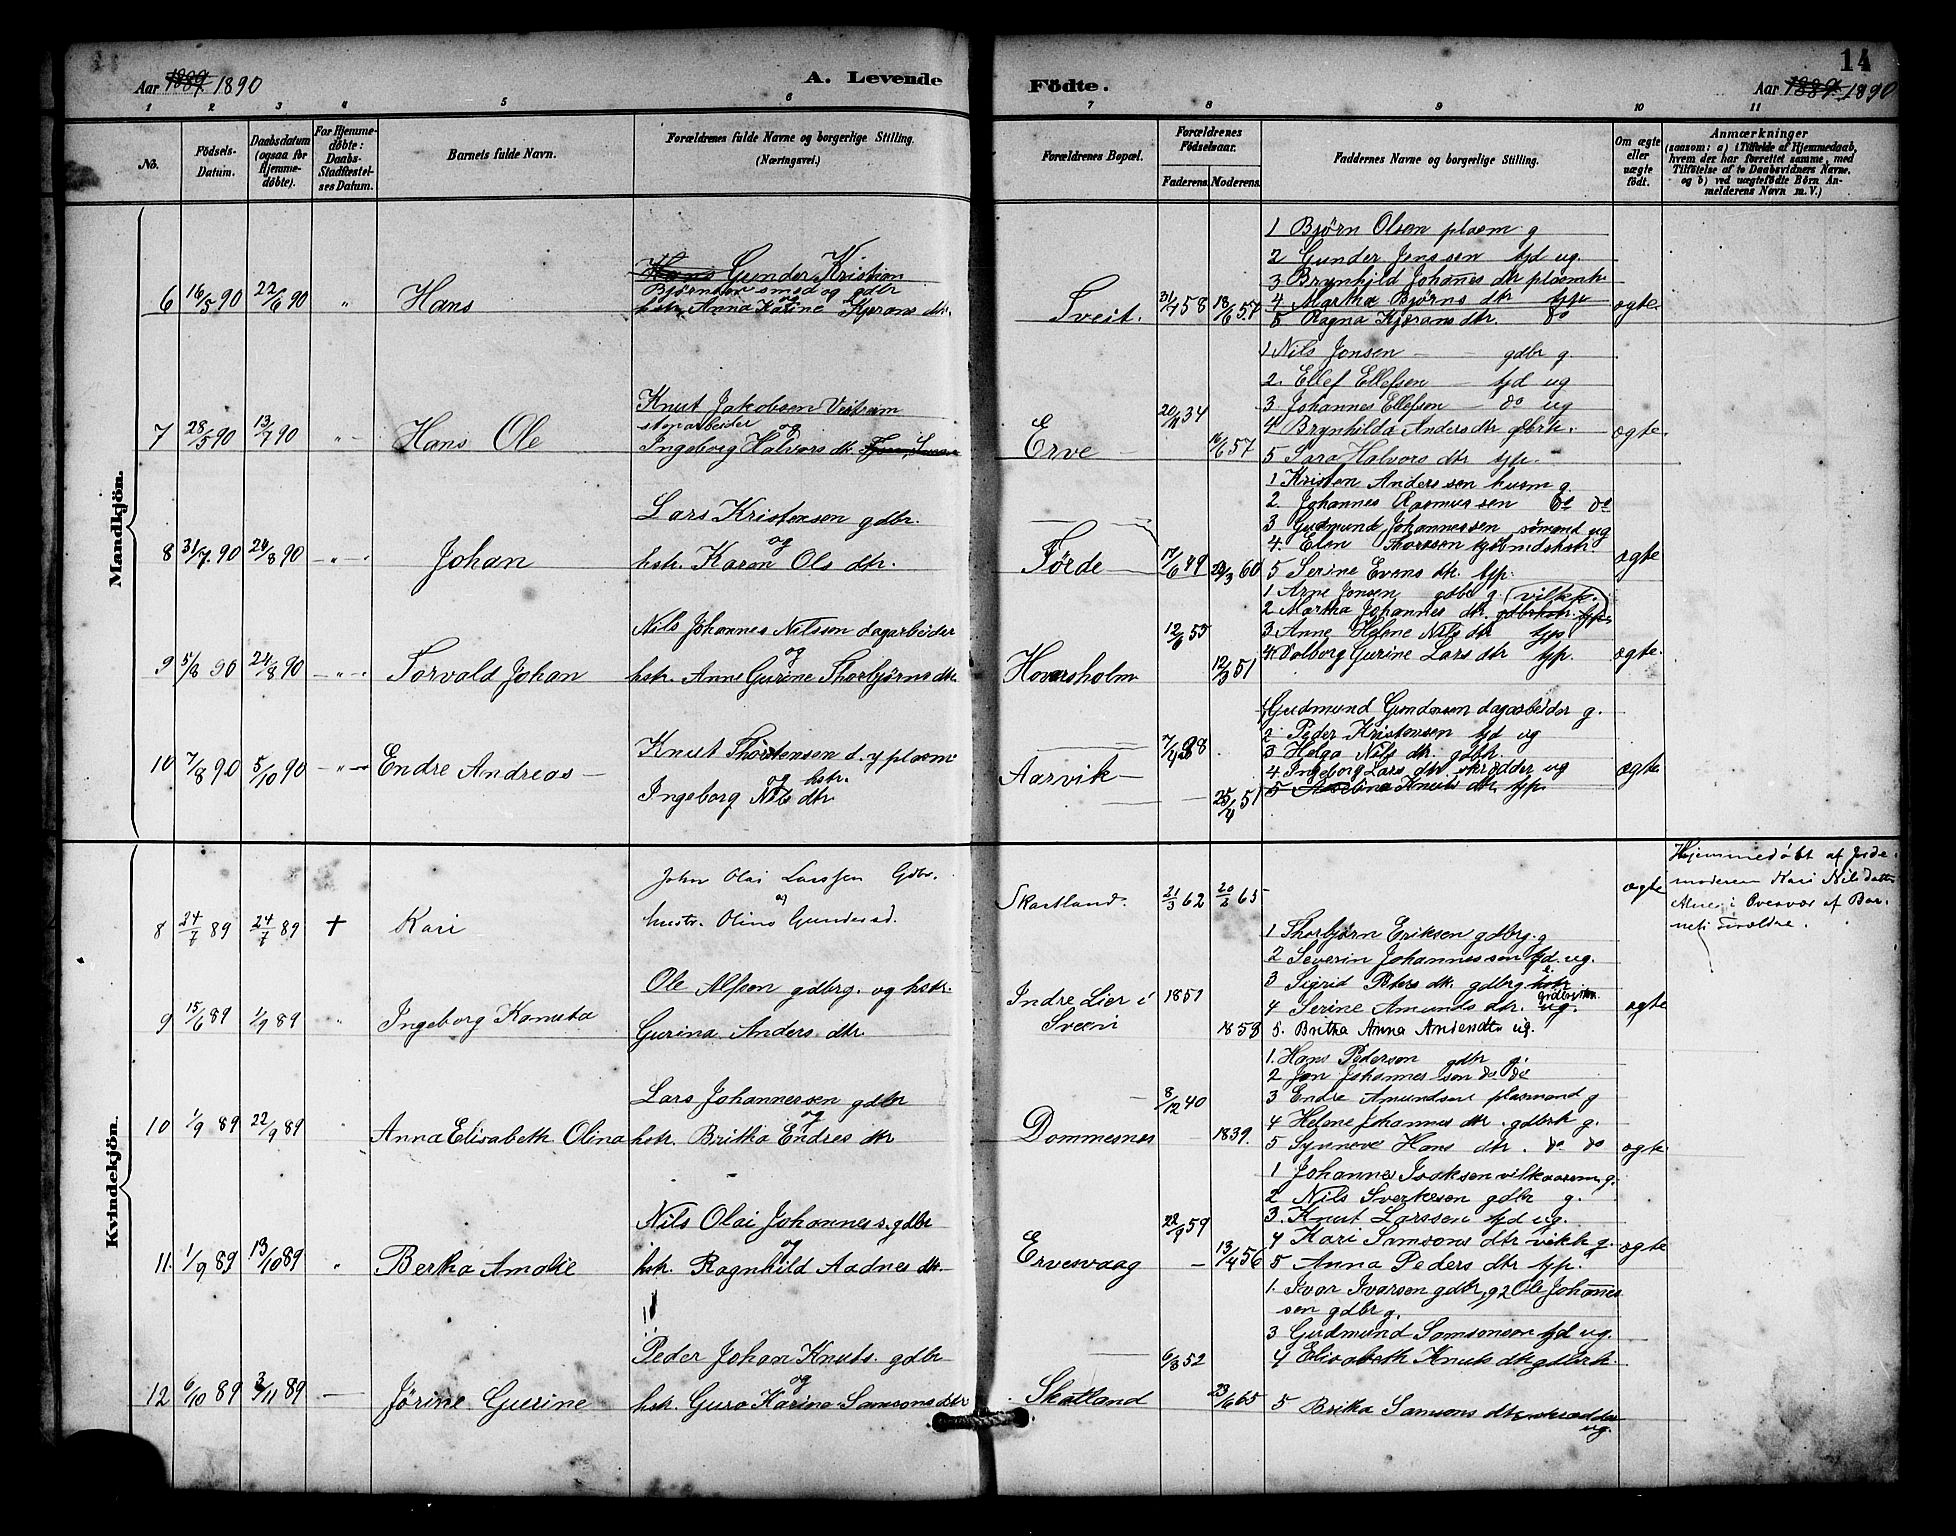 Aar 1889 1890
A. Levende
Födte.
14
Aar 1889. 1890
1 2 3 4 5 6 7 8 9 10 11
No.
Födsels-Datum.
Daabsdatum (ogsaa for Hjemmedøbte).
For Hjemmedøbte: Daabs-Stadfæstelses Datum.
Barnets fulde Navn.
Forældrenes fulde Navne og borgerlige Stilling. (Næringsvei.)
Forældrenes Bopæl.
Forældrenes Födselsaar.
Faderens. Moderens.
Faddernes Navne og borgerlige Stilling.
Om ægte eller uægte födt.
Anmærkninger
(saasom: a) i Tilfælde af Hjemmedaab, hvem der har forrettet samme, med Tilföielse af to Daabsvidners Navne, og b) ved uægtefödte Börn Anmelderens Navn m. V.)
Mandkjön.
6 16/5 90 22/6 90 " Hans
Hans Gunder Kristian
Bjørnsen smed og gdbr
og
hstr. Anna Karine Kjerans dtr.
Sveit. 31/7 58 18/6 57
1 Bjørn Olsen plasm g
2 Gunder Jenssen tjd ug.
3 Brynhild Johanes dtr plasmk.
4 Martha Bjørns dtr tjp
5 Ragna Kjerans dtr. do
ægte.
7 28/5 90 13/7 90 " Hans Ole
Knut Jakobsen
og
Ingeborg Halvors dtr.
Erve 20/4 34 16/6 57
1 Nils Jonsen gdbr g.
2. Ellef Ellefsen tjd ug
3. Johannes Ellefsen do ug
4 Brynhilda Anders dtr gdbrk.
5 Sara Halvors dtr tjp.
ægte.
8 31/7 90 24/8 90 " Johan
Lars Kristensen gdbr.
og
hstr. Karen Ols dtr.
Førde 17/6 24/3 60
1 Kristen Anderssen husm g.
2. Johannes Rasmussen do do
3 Gudmund Johannessen sömand ug
4. Elen
5 Serine Evens dtr. tjp.
ægte
9 5/8 90 24/8 90 " Torvald Johan
Nils Johannes Nilsen dagarbeider
og
hstr. Anne Gurine Thorbjørns dtr.
Hovarsholm 12/6 55 12/3 51
1 Arne Jonsen gdbr g (vilkk.
2 Martha Johannes dtr.
3. Anne Helene Nils dtr tjp
4. Valborg Gurine Lars dtr tjp.
ægte.
10 7/8 90 5/10 90 " Endre Andreas
Knut Thorstensen d. y plasm.
og hstr.
Ingeborg Nils dtr.
Aarvik 7/4 25/4 51
1 Gudmund Gundersen dagarbeider g.
2 Peder Kristensen tjd ug
3 Helga Nils dtr. gdbr
4. Ingeborg Lars dtr. skrædder ug
5 Knuts dtr. tjp.
ægte
Kvindekjön.
8 24/7 89 24/7 89 + Kari
John Olai Larssen Gdbr.
og
hustr. Olina Gundersd.
Skartland. 21/3 62 20/2 65
ægte
Hjemmedøbt af Jorde-
moderen Kari Nilsdatter
i Overvær af Bar-
nets Forældre.
9 15/6 89 1/9 89 " Ingeborg Kanuta
Ole Alfsen gdbrg. og hstr.
Gurina Anders dtr.
Indre Lier i
Sveen 1851 1858
1 Thorbjørn Eriksen gdbrg. g
2 Severin Johannessen tjd. ug.
3 Sigrid Peters dtr. gdbrg
4 Serine Amunds dtr. ug.
5. Britha Anna ug.
ægte
10 1/9 89 22/9 89 " Anna Elisabeth Olina
Lars Johannessen gdbr
og
hstr. Britha Endres dtr
Dommesnes 8/12 40 1839.
1. Hans Pedersen gdbr g.
2 Jon Johannessen do do
3 Endre Amundsen plasmand g
4 Helene Johannes dtr. gdbrk g.
5 Synneve Hans dtr. do do
ægte
11. 1/9 89 13/10 89 " Bertha Amalie
Nils Olai Johannes s. gdbr
og
hstr. Ragnhild Aadnes dtr.
Ervesvaag 22/9 59 13/4 56
1 Johannes Isaksen vilkaarsm. g.
2 Nils Sverkesen gdbr g.
3. Knut Larssen tjd ug.
4 Kari Samsons dtr vilkk g.
5 Anna Peders dtr tjp.
ægte
12 6/10 89 3/11 89 Jørine Gurine
Peder Johan Knuts. gdbr
og
hstr. Guro Karina Samsons dtr
Skatland 6/8 52 23/6 65
1. Ivar Ivarsen gdbr, g 2 Ole Johannes
sen gdbr g.
3 Gudmund Samsonsen tjd ug.
4 Elisabeth Knuts dtr gdbrk.
5 Brita Samsons dtr, skrædder
ug.